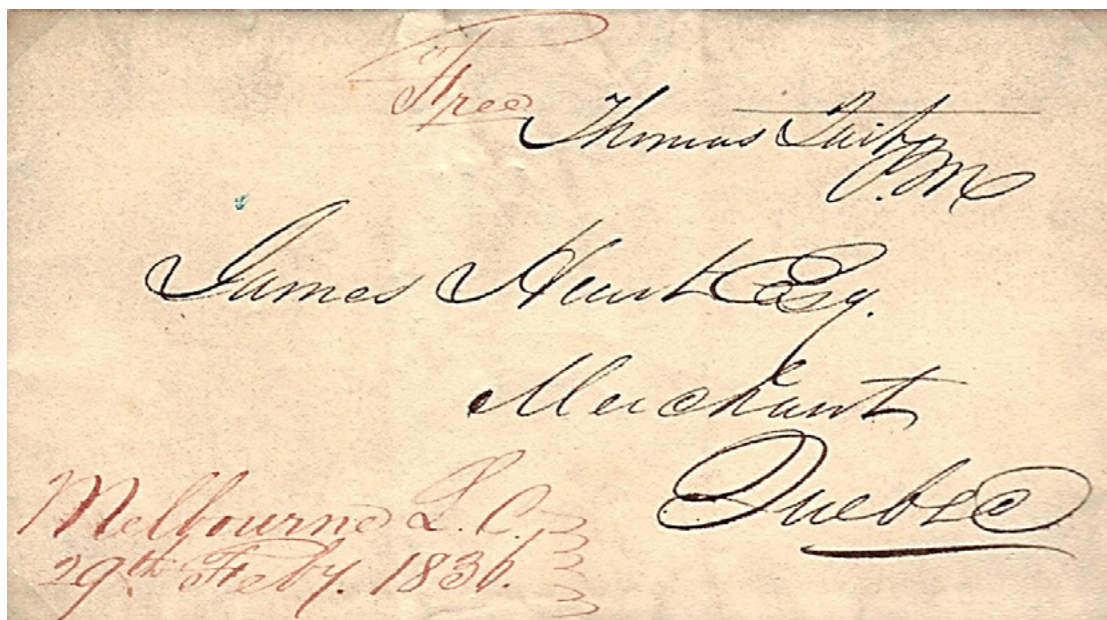 Free
Thomas Tait
P.M
James Hunt Esq.
Merchant
Quebec
Melbourne L.C.
29th Feby. 1836.